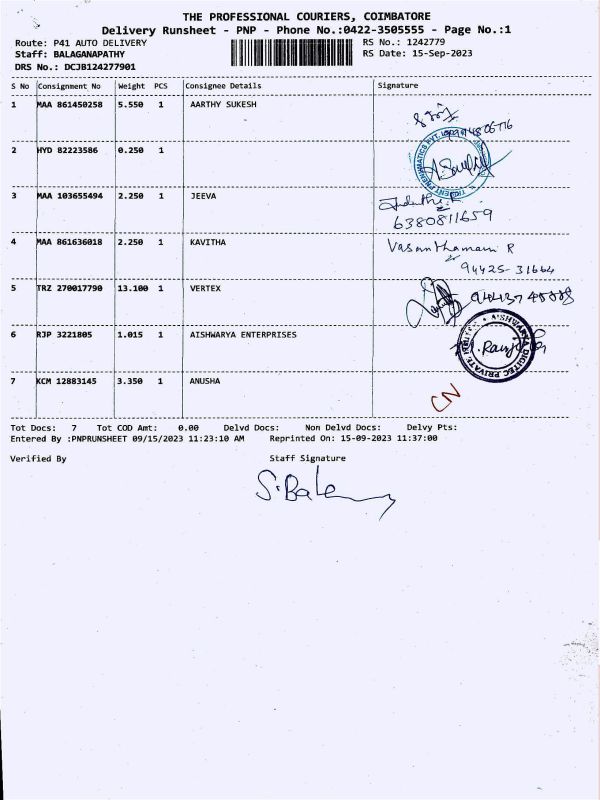 THE PROFESSIONAL COURIERS, COIMBATORE
Delivery Runsheet - PNP - Phone No.:0422-3505555 - Page No.:1
Route: P41 AUTO DELIVERY RS No.: 1242779
Staff: BALAGANAPATHY RS Date: 15-Sep-2023
DRS No.: DCJB124277901
S No Consignment No Weight PCS Consignee Details Signature
1 MAA 861450258 5.550 1 AARTHY SUKESH
2 HYD 82223586 0.250 1
3 MAA 103655494 2.250 1 JEEVA
6380811659
4 MAA 861636018 2.250 1 KAVITHA Vasanthamani R
94425-31664
5 TRZ 270017790 13.100 1 VERTEX
6 RJP 3221805 1.015 1 AISHWARYA ENTERPRISES
7 KCM 12883145 3.350 1 ANUSHA
CN
Tot Docs: 7 Tot COD Amt: 0.00 Delvd Docs: Non Delvd Docs: Delvy Pts:
Entered By :PNPRUNSHEET 09/15/2023 11:23:10 AM Reprinted On: 15-09-2023 11:37:00
Verified By Staff Signature
S.Bale